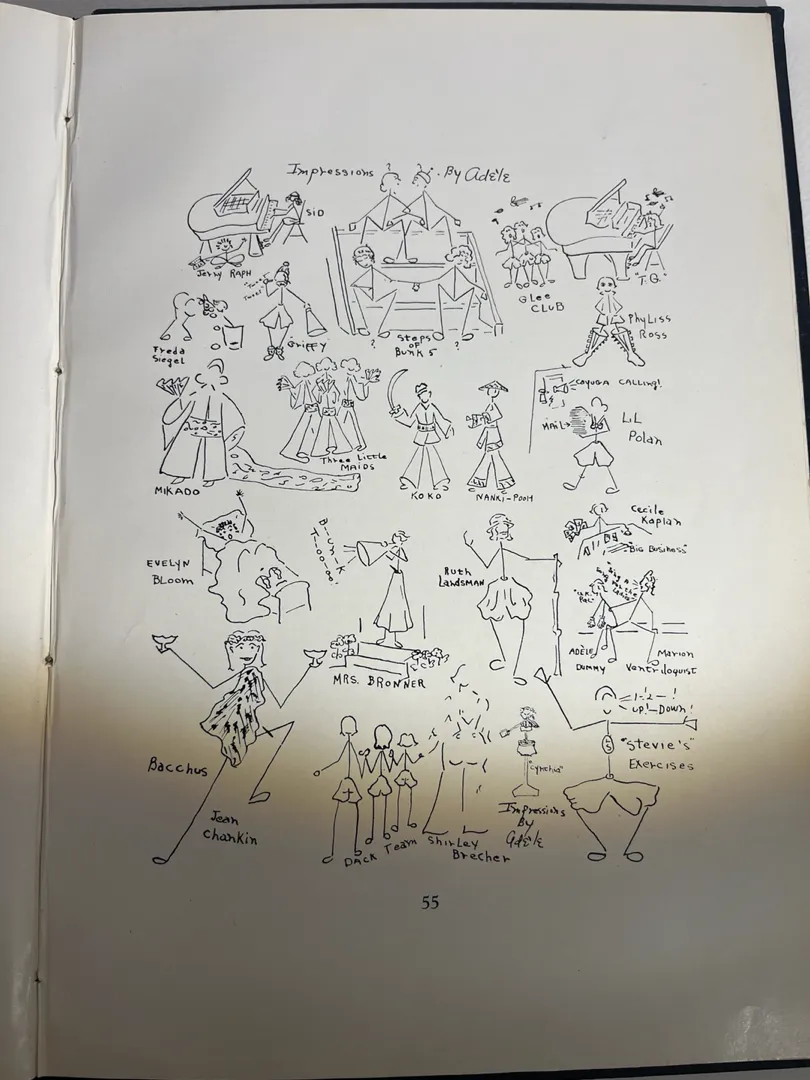 Impressions . By Adele
SID
Jerry RAPH
GLee
CLUB
"T.G."
Freda
Siegel
"Tweet
Tweet"
Griffy
?
?
Steps
OF
BUNK 5
?
?
PhyLiss
Ross
MIKADO
Three Little
MAIDS
KOKO
NANKi-PooH
CAYUGA CALLING!
MAiL
LiL
Polan
EVELYN
BLoom
MRS. BRONNER
Ruth
LandsMAN
Cecile
Kaplan
"Big Business"
ADELE
DUMMY
Marion
Ventriloquist
Bacchus
Jean
Chankin
DACK Team
ShirLey
Brecher
"Cynthia"
Impressions
By
Adele
1-2-!
up!-Down!
"Stevie's"
Exercises
55